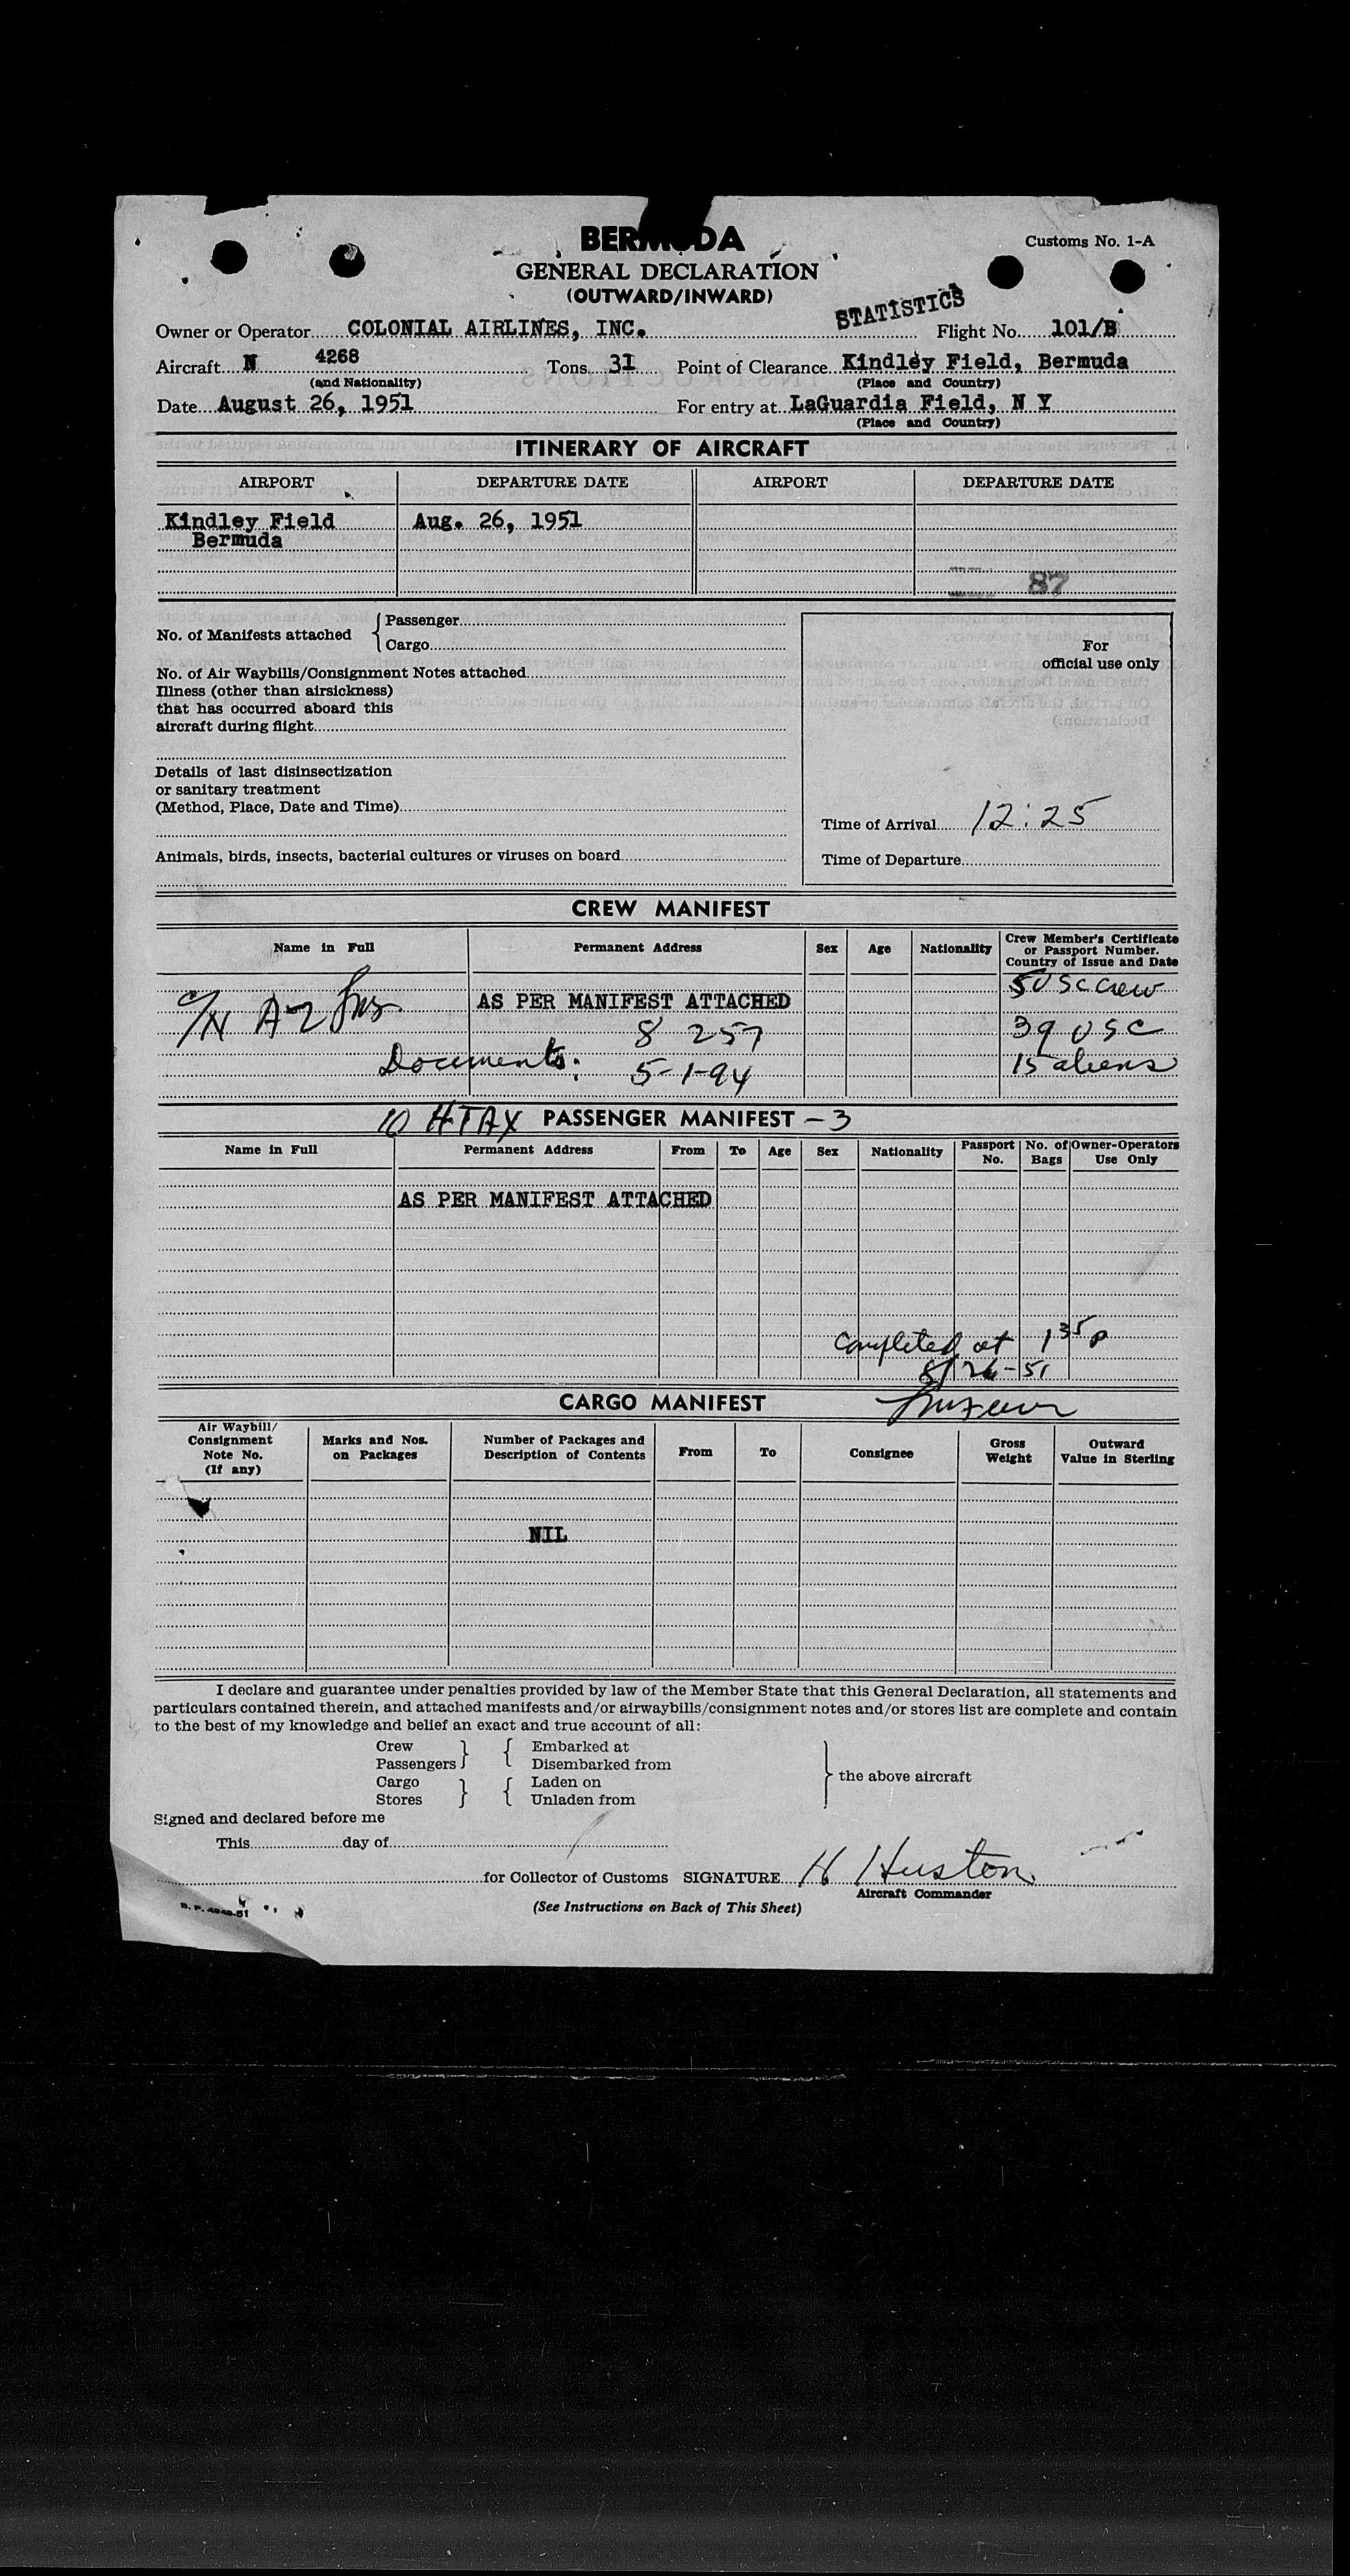 BERMUDA
Customs No. 1-A
GENERAL DECLARATION
(OUTWARD/INWARD)
STATISTICS
Owner or Operator COLONIAL AIRLINES, INC. Flight No. 101/B
Aircraft N 4268 Tons 31 Point of Clearance Kindley Field, Bermuda
(and Nationality) (Place and Country)
Date August 26, 1951 For entry at LaGuardia Field, N Y
(Place and Country)
ITINERARY OF AIRCRAFT
AIRPORT DEPARTURE DATE AIRPORT DEPARTURE DATE
Kindley Field Aug. 26, 1951
Bermuda
87
No. of Manifests attached { Passenger
Cargo
For
official use only
No. of Air Waybills/Consignment Notes attached
Illness (other than airsickness)
that has occurred aboard this
aircraft during flight
Details of last disinsectization
or sanitary treatment
(Method, Place, Date and Time)
Time of Arrival 12:25
Animals, birds, insects, bacterial cultures or viruses on board
Time of Departure
CREW MANIFEST
Name in Full Permanent Address Sex Age Nationality Crew Member's Certificate
or Passport Number.
Country of Issue and Date
5 USC crew
AS PER MANIFEST ATTACHED
8 257 39 USC
Documents: 5-1-94 15 aliens
10 HTAX PASSENGER MANIFEST - 3
Name in Full Permanent Address From To Age Sex Nationality Passport No. No. of Bags Owner-Operators Use Only
AS PER MANIFEST ATTACHED
Completed at 1 35 p
8/26-51
CARGO MANIFEST
Air Waybill/
Consignment
Note No.
(If any)
Marks and Nos.
on Packages
Number of Packages and
Description of Contents
From To Consignee Gross
Weight
Outward
Value in Sterling
NIL
I declare and guarantee under penalties provided by law of the Member State that this General Declaration, all statements and
particulars contained therein, and attached manifests and/or airwaybills/consignment notes and/or stores list are complete and contain
to the best of my knowledge and belief an exact and true account of all:
Crew } { Embarked at
Passengers Disembarked from
Cargo } { Laden on } the above aircraft
Stores Unladen from
Signed and declared before me
This day of
for Collector of Customs SIGNATURE H Huston
Aircraft Commander
(See Instructions on Back of This Sheet)